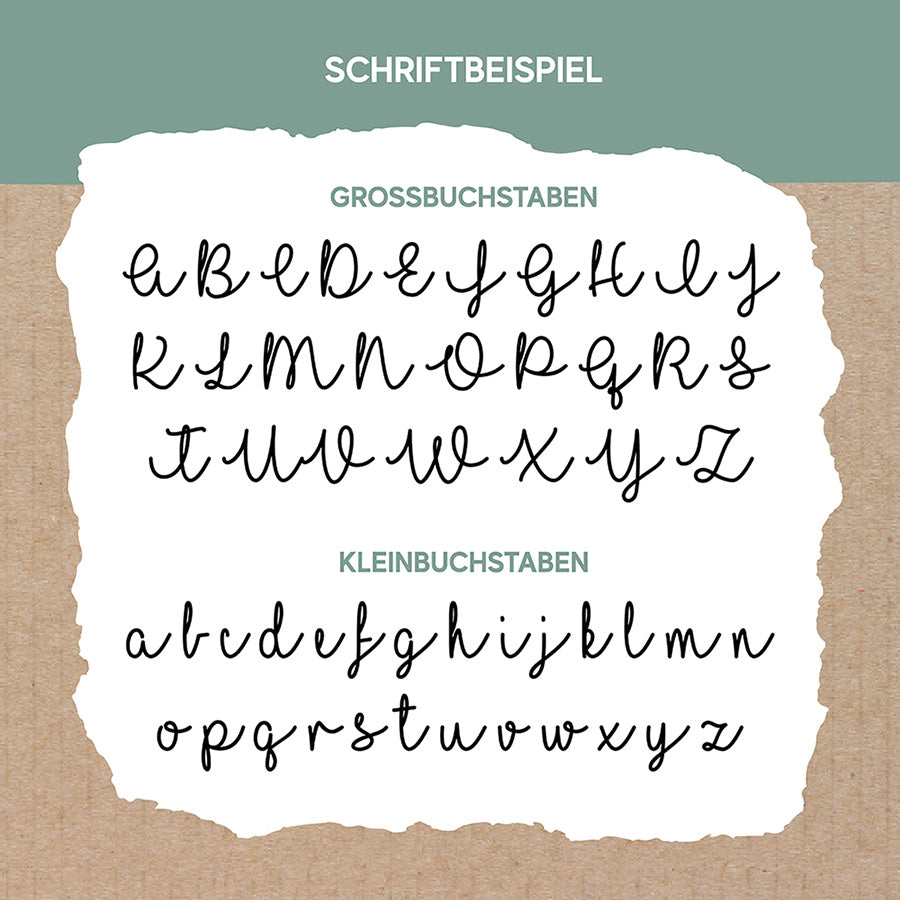 SCHRIFTBEISPIEL
GROSSBUCHSTABEN
ABCDEFGHIJ
KLMNOPQRS
TUVWXYZ
KLEINBUCHSTABEN
abcdefghijklmn
opqrstuvwxyz